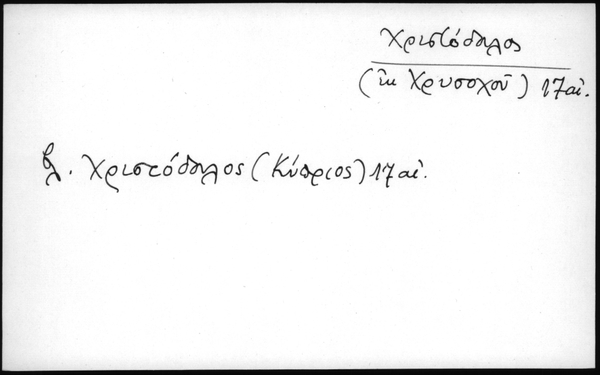 Χριστόδουλος
(ἐκ Χρυσοχοῦ) 17 αἰ.
βλ. Χριστόδουλος (Κύπριος) 17 αἰ.